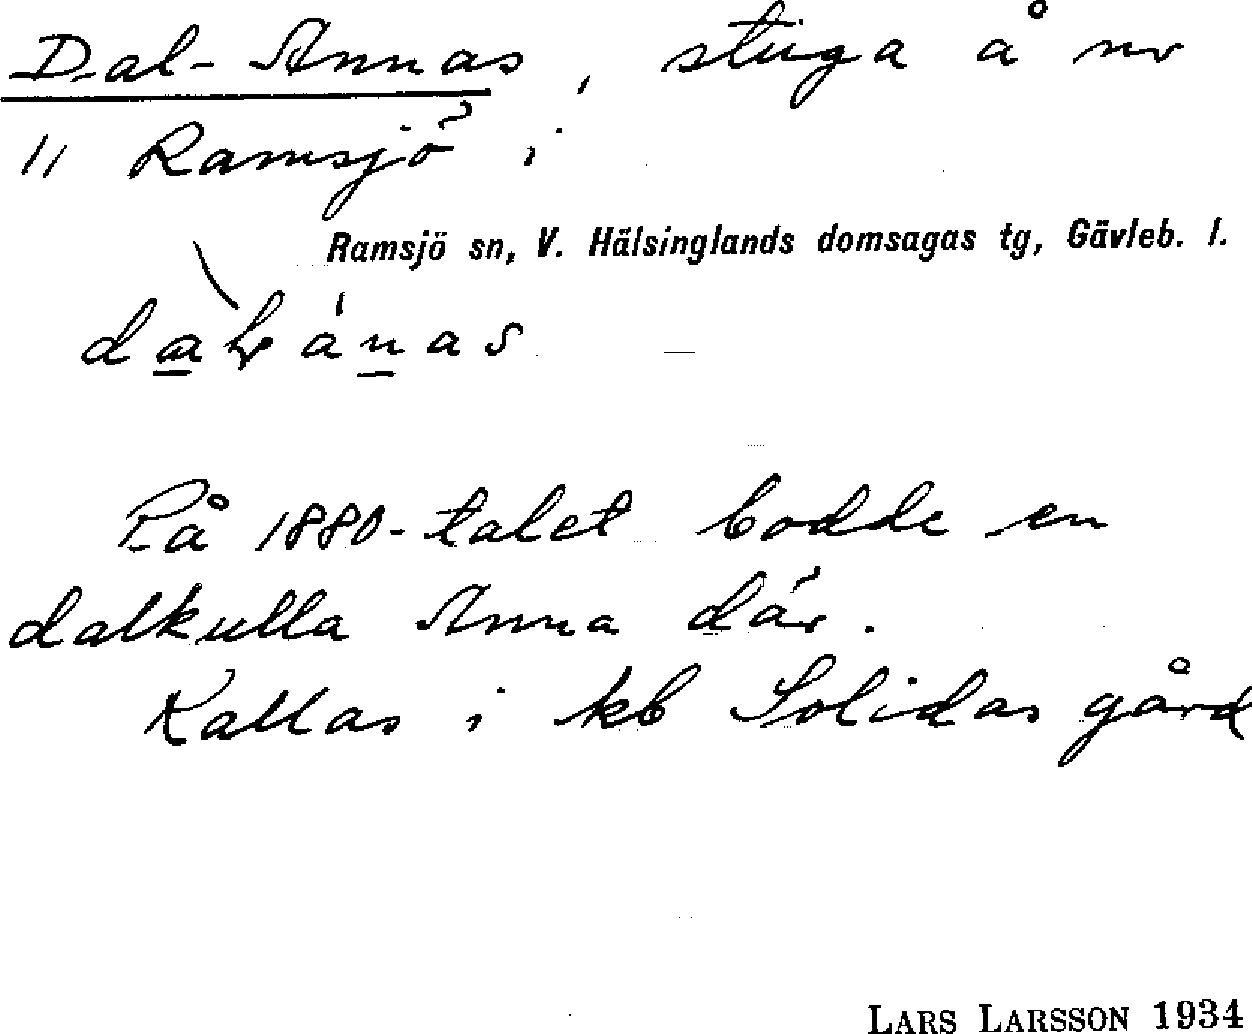 Dal-Annas, stuga å nr
11 Ramsjö i
Ramsjö sn, V. Hälsinglands domsagas tg, Gävleb. l.
På 1880-talet bodde en
dalkulla Anna där.
Kallas i kb Solidas gård
LARS LARSSON 1934